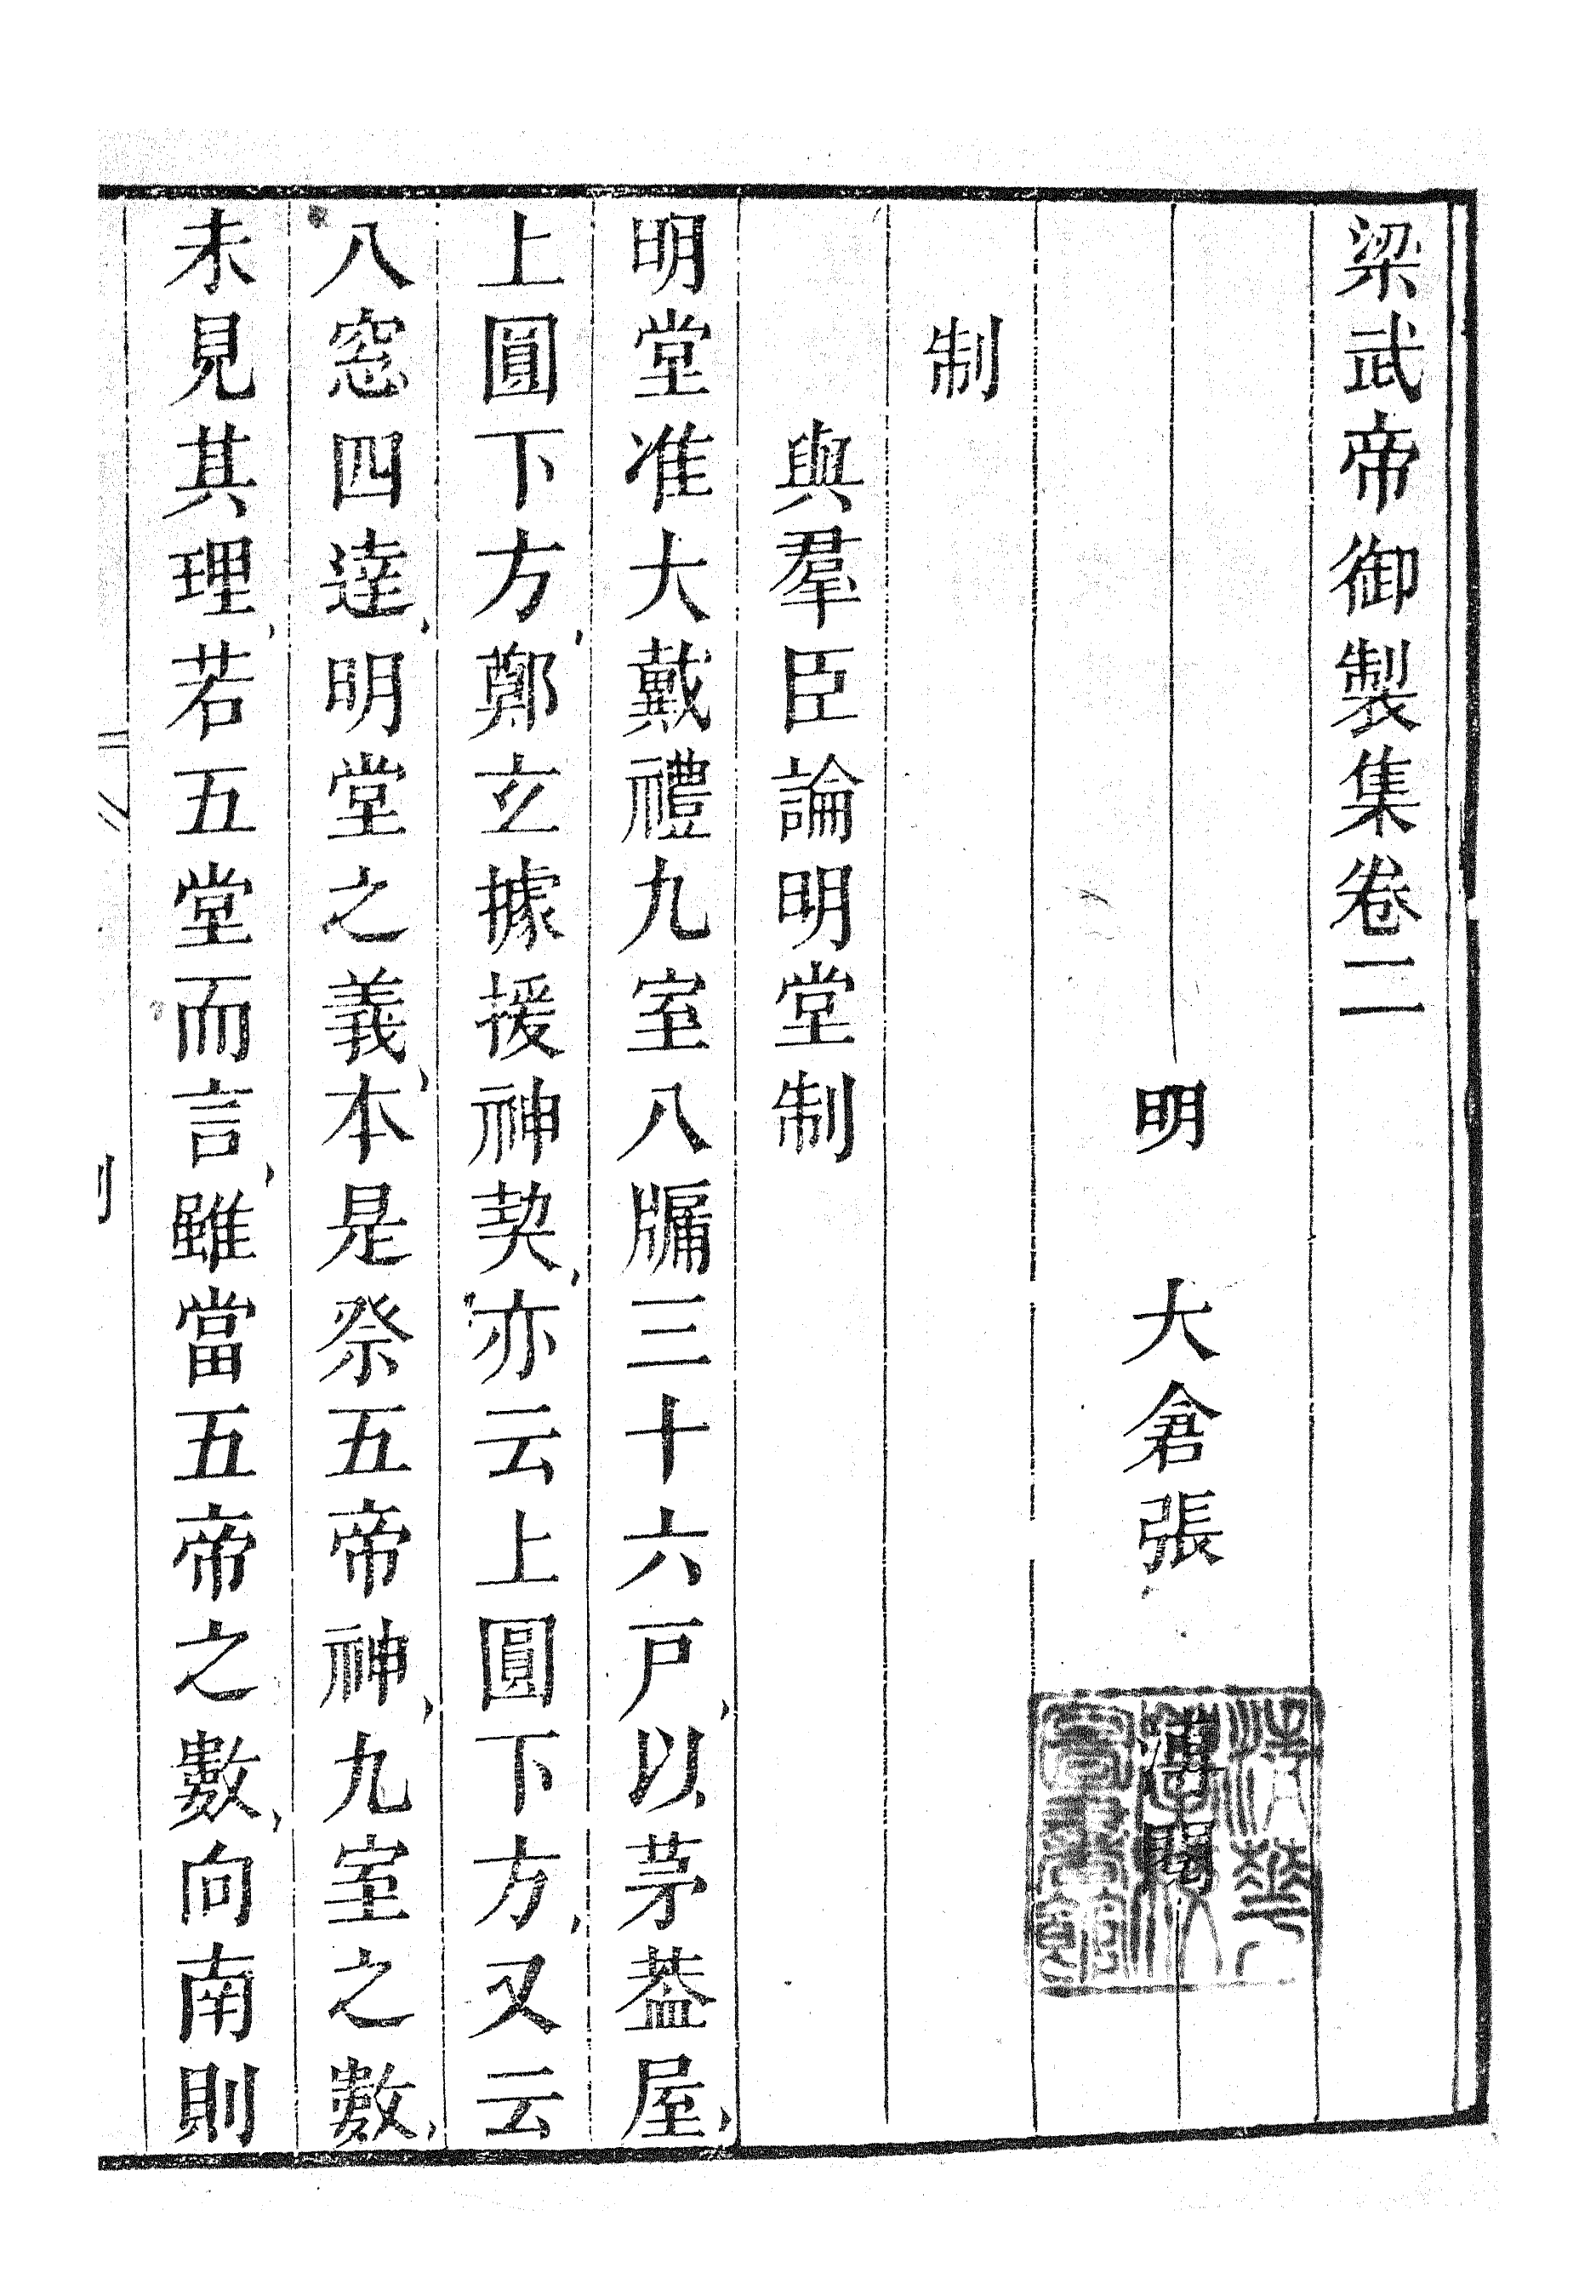 梁武帝御製集卷二
明　大倉張溥閱
制
與羣臣論明堂制
明堂准大戴禮九室八牖三十六戸、以茅葢屋、
上圓下方、鄭玄據援神契、亦云上圓下方、又云
八窓四達、明堂之義、本是祭五帝神、九室之數、
未見其理、若五堂而言、雖當五帝之數、向南則